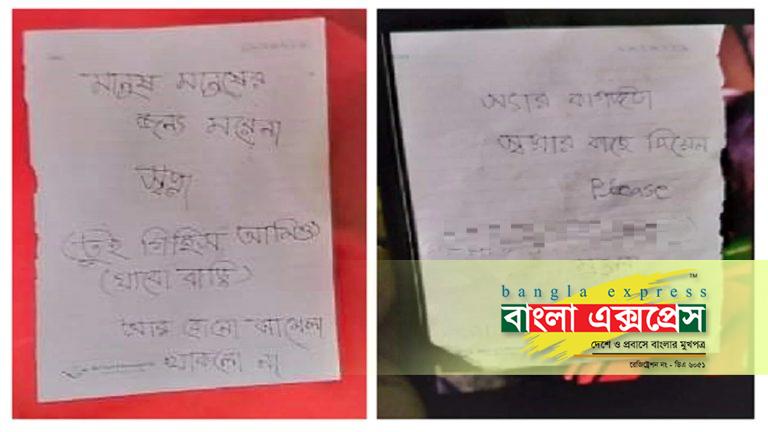 মানুষ মানুষের
জন্যে মরেনা
স্বপ্না
(তুই গিছিস আমিও)
(যাবো বাড়ি)
আর কোনো ঝামেলা
থাকলো না
আমার কাগজটা
স্বপ্নার কাছে দিয়েন
Please
bangla express
TM
বাংলা এক্সপ্রেস
দেশে ও প্রবাসে বাংলার মুখপত্র
রেজিষ্ট্রেশন নং - ডিএ ৬০৫১